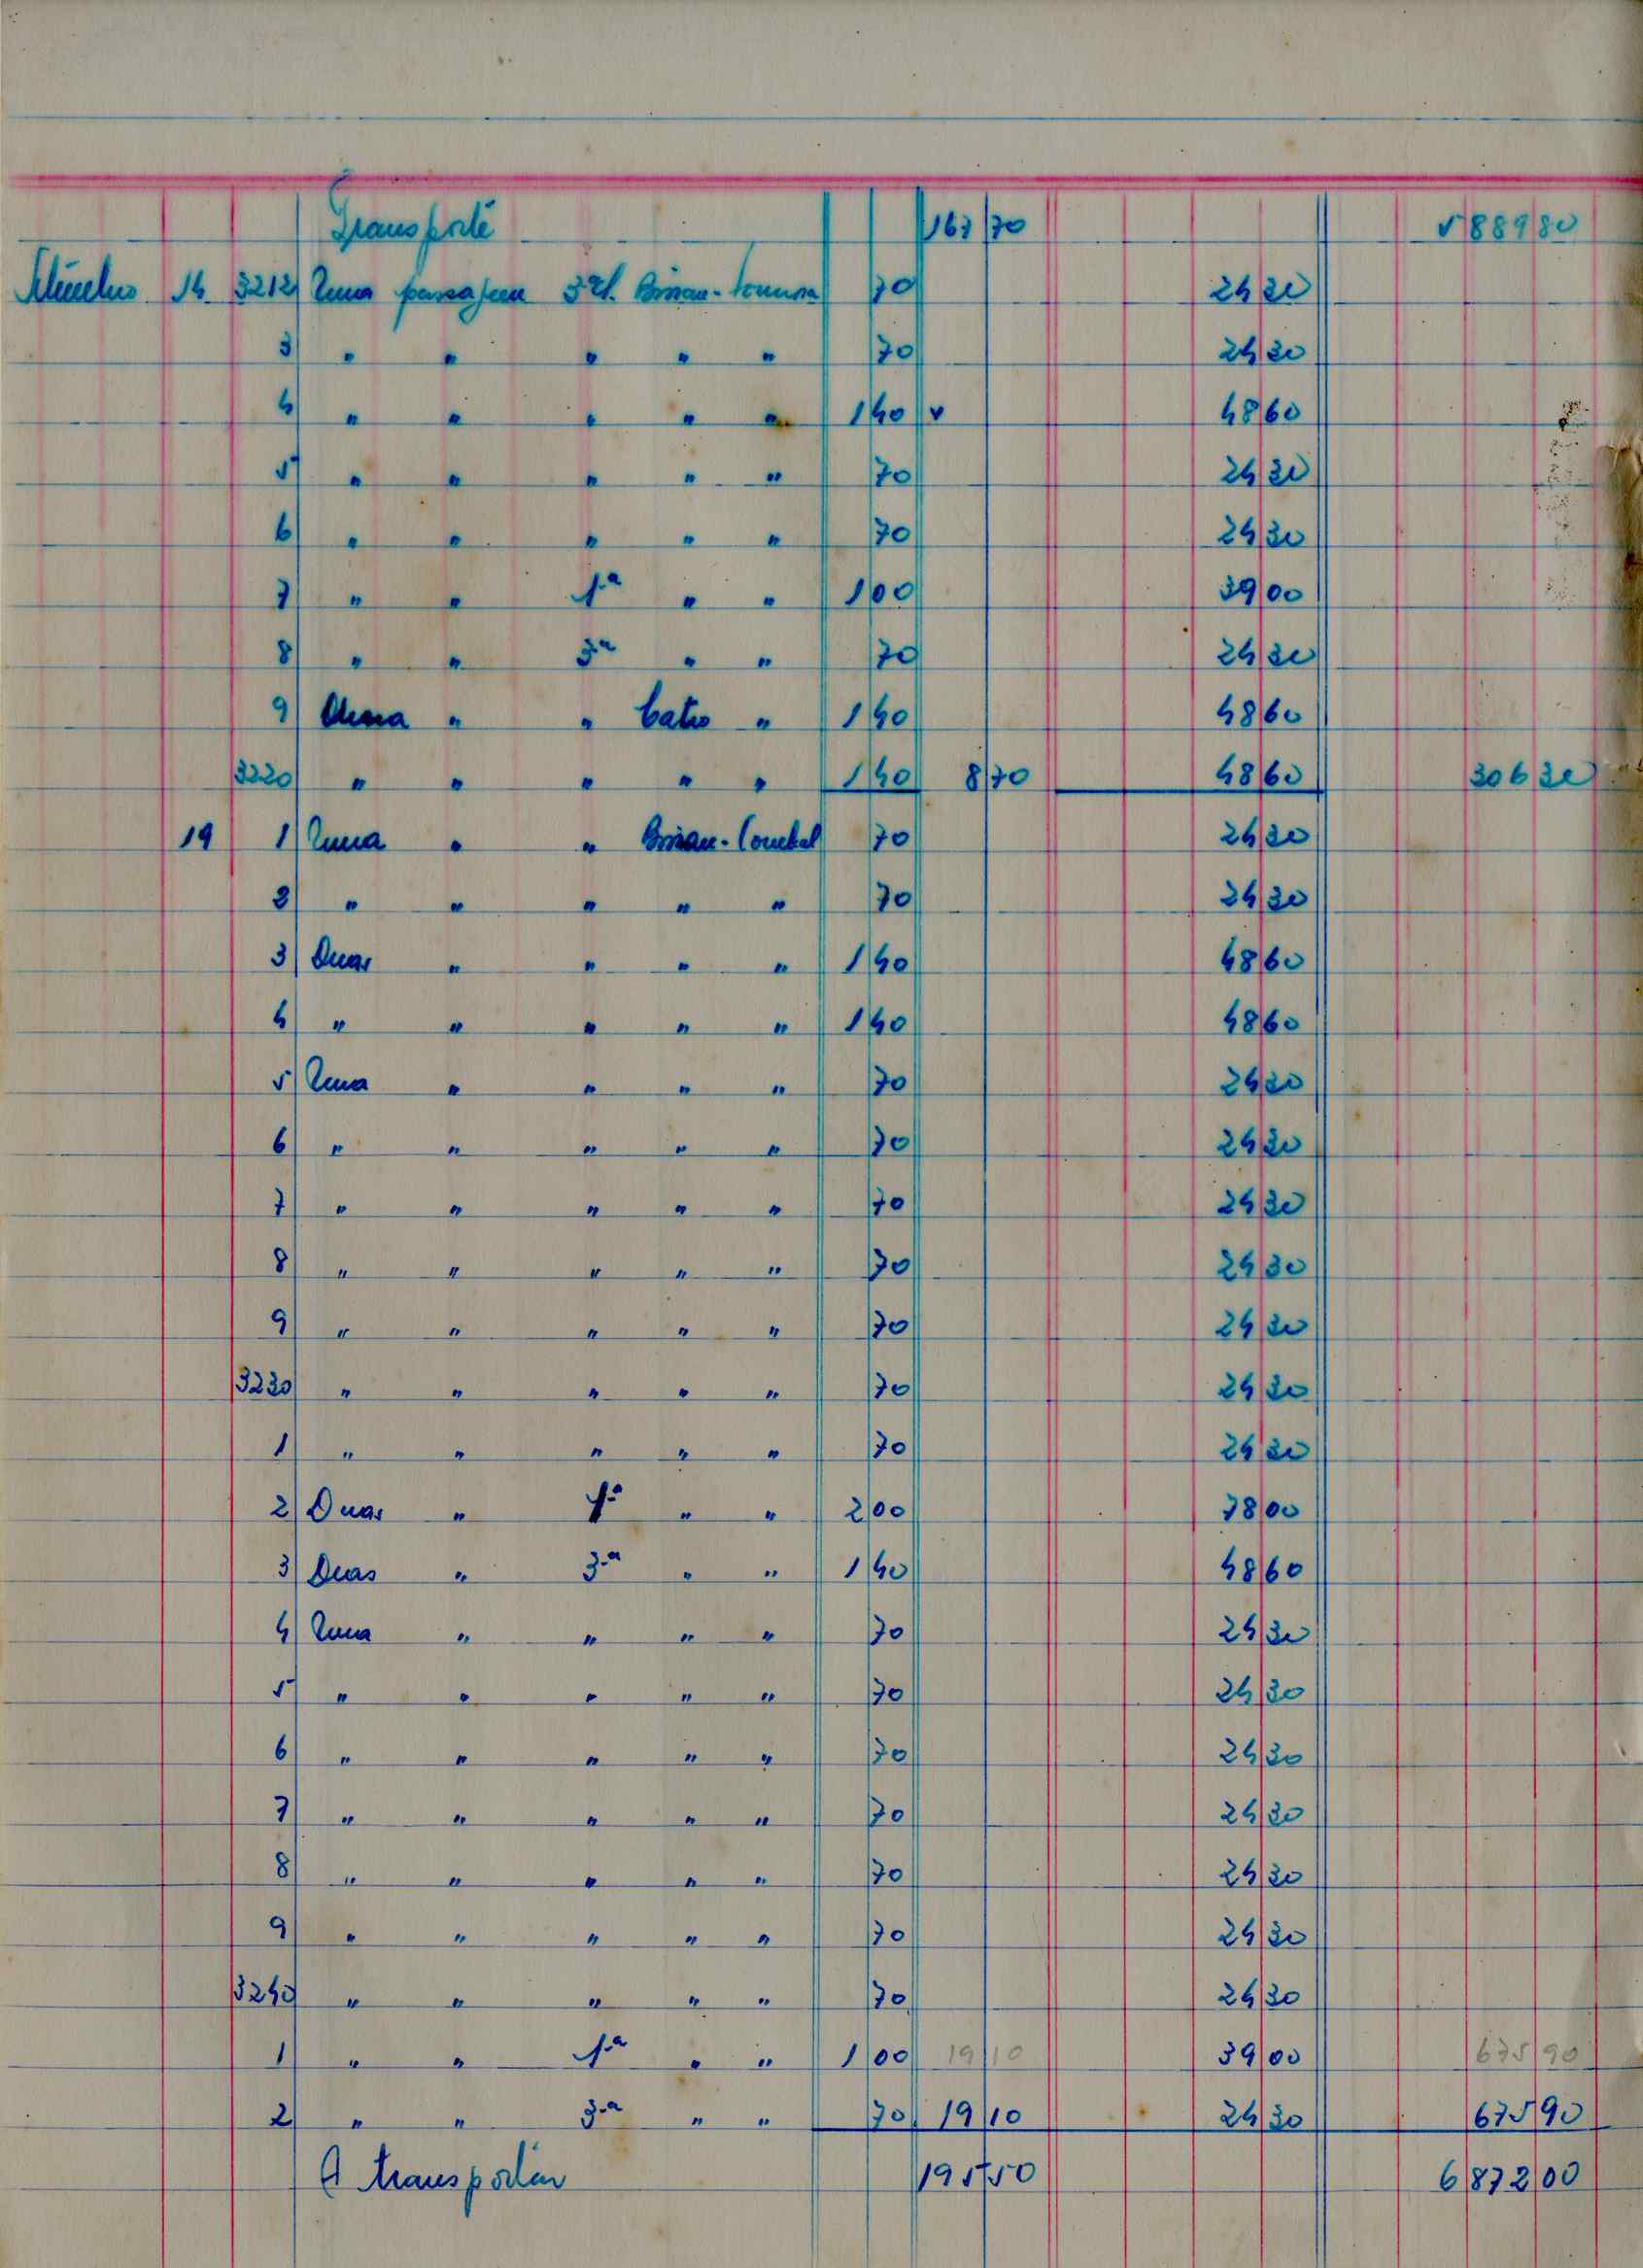 Transporte 167 70 5 889 80
14 3212 Uma passajem 3ª cl. Bissau- 70 24 30
3 " " " " " 70 24 30
4 " " " " " 1 40 v 48 60
5 " " " " " 70 24 30
6 " " " " " 70 24 30
7 " " 1ª " " 1 00 39 00
8 " " 3ª " " 70 24 30
9 Duas " " Catio " 1 40 48 60
3220 " " " " " 1 40 8 70 48 60 306 30
19 1 Uma " " Bissau- 70 24 30
2 " " " " " 70 24 30
3 Duas " " " " 1 40 48 60
4 " " " " " 1 40 48 60
5 Uma " " " " 70 24 30
6 " " " " " 70 24 30
7 " " " " " 70 24 30
8 " " " " " 70 24 30
9 " " " " " 70 24 30
3230 " " " " " 70 24 30
1 " " " " " 70 24 30
2 Duas " 1ª " " 2 00 78 00
3 Duas " 3ª " " 1 40 48 60
4 Uma " " " " 70 24 30
5 " " " " " 70 24 30
6 " " " " " 70 24 30
7 " " " " " 70 24 30
8 " " " " " 70 24 30
9 " " " " " 70 24 30
3240 " " " " " 70 24 30
1 " " 1ª " " 1 00 19 10 39 00 675 90
2 " " 3ª " " 70 19 10 24 30 675 90
A transportar 195 50 6 872 00